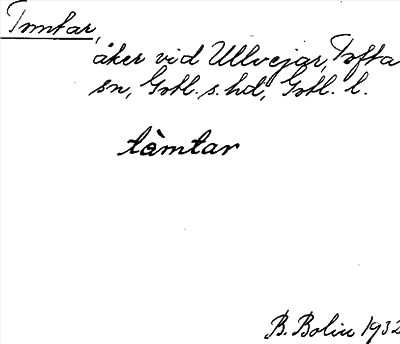 Tomtar,
åker vid Ullvejar, Tofta
sn, Gotl. s. hd, Gotl. l.
tàmtar
B. Bolin 1932